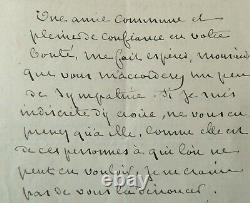 Une amie commune et
pleine de confiance en votre
bonté, me fait espérer, monsieur
que vous m'accordez un peu
de sympathie. Si je suis
indiscrète d'y croire, ne vous en
prenez qu'à elle, comme elle est
de ces personnes à qui l'on ne
peut en vouloir, je ne crains
pas de vous la dénoncer.